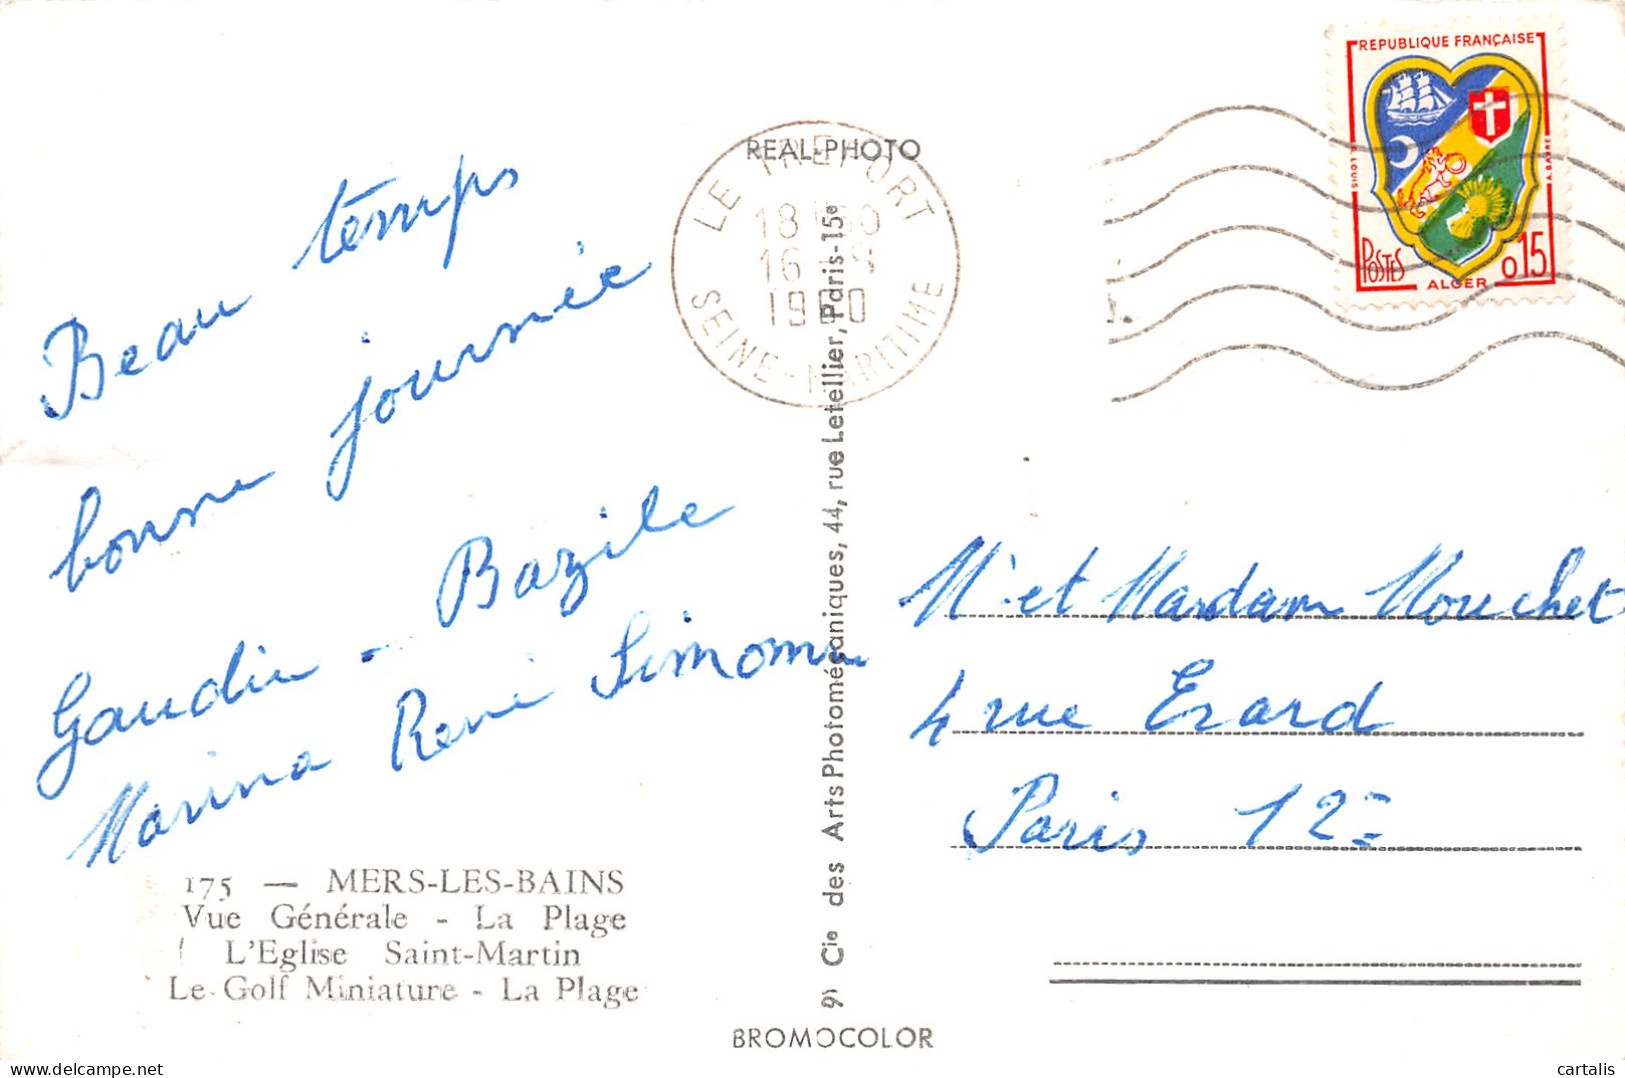 REPUBLIQUE FRANÇAISE
POSTES
0,15
ALGER
REAL-PHOTO
LE TREPORT
1960
SEINE-MARITIME
Beau temps
bonne journée
Gaudin - Bazile
Marina René Simonne
M. et Mardam Mouchet
4 rue Erard
Paris 12=
175 — MERS-LES-BAINS
Vue Générale - La Plage
L'Eglise Saint-Martin
Le Golf Miniature - La Plage
Cie des Arts Photomécaniques, 44, rue Letellier, Paris-15e
BROMOCOLOR
cartalis